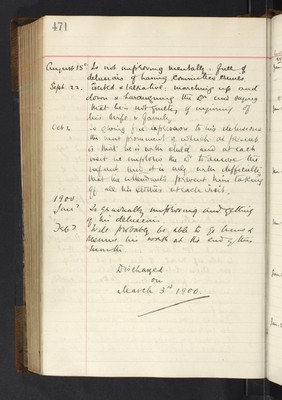 471
August 15th Is not improving mentally: full of
delusions of having committed crimes
Sept. 22. Excited & talkative: marching up and
down & haranguing the Dr and saying
that he is not guilty of injuring of
his wife & family.
Oct 1 Is giving full expression to his delusions
the most prominent of which at present
is that he is with child and at each
visit he implores the Dr to remove the
infant and it is only with difficulty
that the attendants prevent him taking
off all his clothes at each visit.
1900
Jany Is gradually improving and getting
of his delusions
Feby Will probably be able to go home &
resume his work at the end of this
month.
Discharged
on
March 3rd 1900.